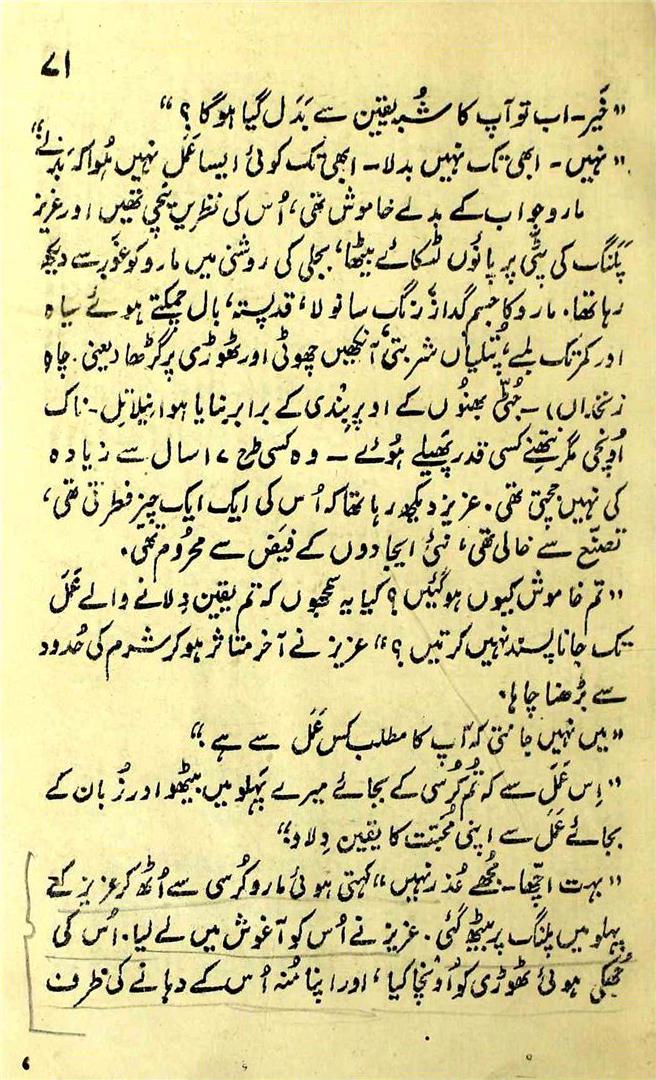 ۷۱
"خَیر۔ اب تو آپ کا شُبہ یقین سے بَدَل گیا ہوگا؟"
"نہیں۔ ابھی تک نہیں بدلا۔ ابھی تک کوئی ایسا عَمَل نہیں ہُوا کہ بدلے"
مارو جواب کے بدلے خاموش تھی، اُس کی نظریں نیچی تھیں اور عزیز
پَلَنگ کی پٹّی پر پاؤں لٹکائے بیٹھا، بجلی کی روشنی میں مارو کو غَور سے دیکھ
رہا تھا۔ مارو کا جسم گداز، رنگ سانولا، قد پستہ، بال چمکتے ہوئے سیاہ
اور کمر تک لمبے، پُتلیاں شربتی، آنکھیں چھوٹی اور ٹھوڑی پر گڑھا (یعنی چاہِ
زنخداں)۔ جُٹّی بھنوُں کے اوپر بِندی کے برابر بنایا ہوا نیلا تِل۔ ناک
اُونچی مگر نتھنے کسی قدر پھیلے ہُوئے۔ وہ کسی طرح ۱۷ سال سے زیادہ
کی نہیں جچتی تھی۔ عزیز دیکھ رہا تھا کہ اُس کی ایک ایک چیز فطرتی تھی،
تصنّع سے خالی تھی، نئی ایجادوں کے فیَض سے محرُوم تھی۔
"تم خاموش کیوں ہوگئیں؟ کیا یہ سمجھوں کہ تم یقین دِلانے والے عَمَل
تک جانا پسند نہیں کرتیں؟" عزیز نے آخر متاثر ہوکر شرم کی حُدود
سے بڑھنا چاہا۔
"میں نہیں جانتی کہ آپ کا مطلب کس عَمَل سے ہے۔"
"اِس عَمَل سے کہ تُم کُرسی کے بجائے میرے پَہلو میں بیٹھو اور زُبان کے
بجائے عَمَل سے اپنی مُحبّت کا یقین دِلاؤ۔"
"بہت اچّھا۔ مُجھے عُذر نہیں" کہتی ہوئی مارو کُرسی سے اُٹھ کر عزیز کے
پہلو میں پلنگ پر بیٹھ گئی۔ عزیز نے اُس کو آغوش میں لے لیا۔ اُس کی
جُھکی ہوئی ٹھوڑی کو اُونچا کیا، اور اپنا مُنہ اُس کے دہانے کی طرف